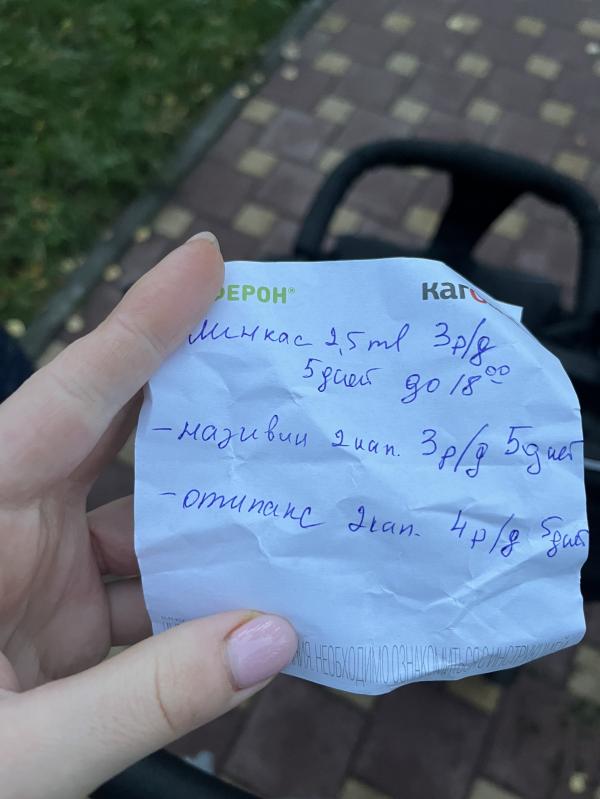 ФЕРОН® каго
минкас 2,5 ml 3 р/д
5 дней до 18 00
- називин 2 кап. 3 р/д 5 дней
- отипакс 2 кап. 4 р/д 5 дней
НЕОБХОДИМО ОЗНАКОМИТЬСЯ С ИНСТРУКЦИЕЙ